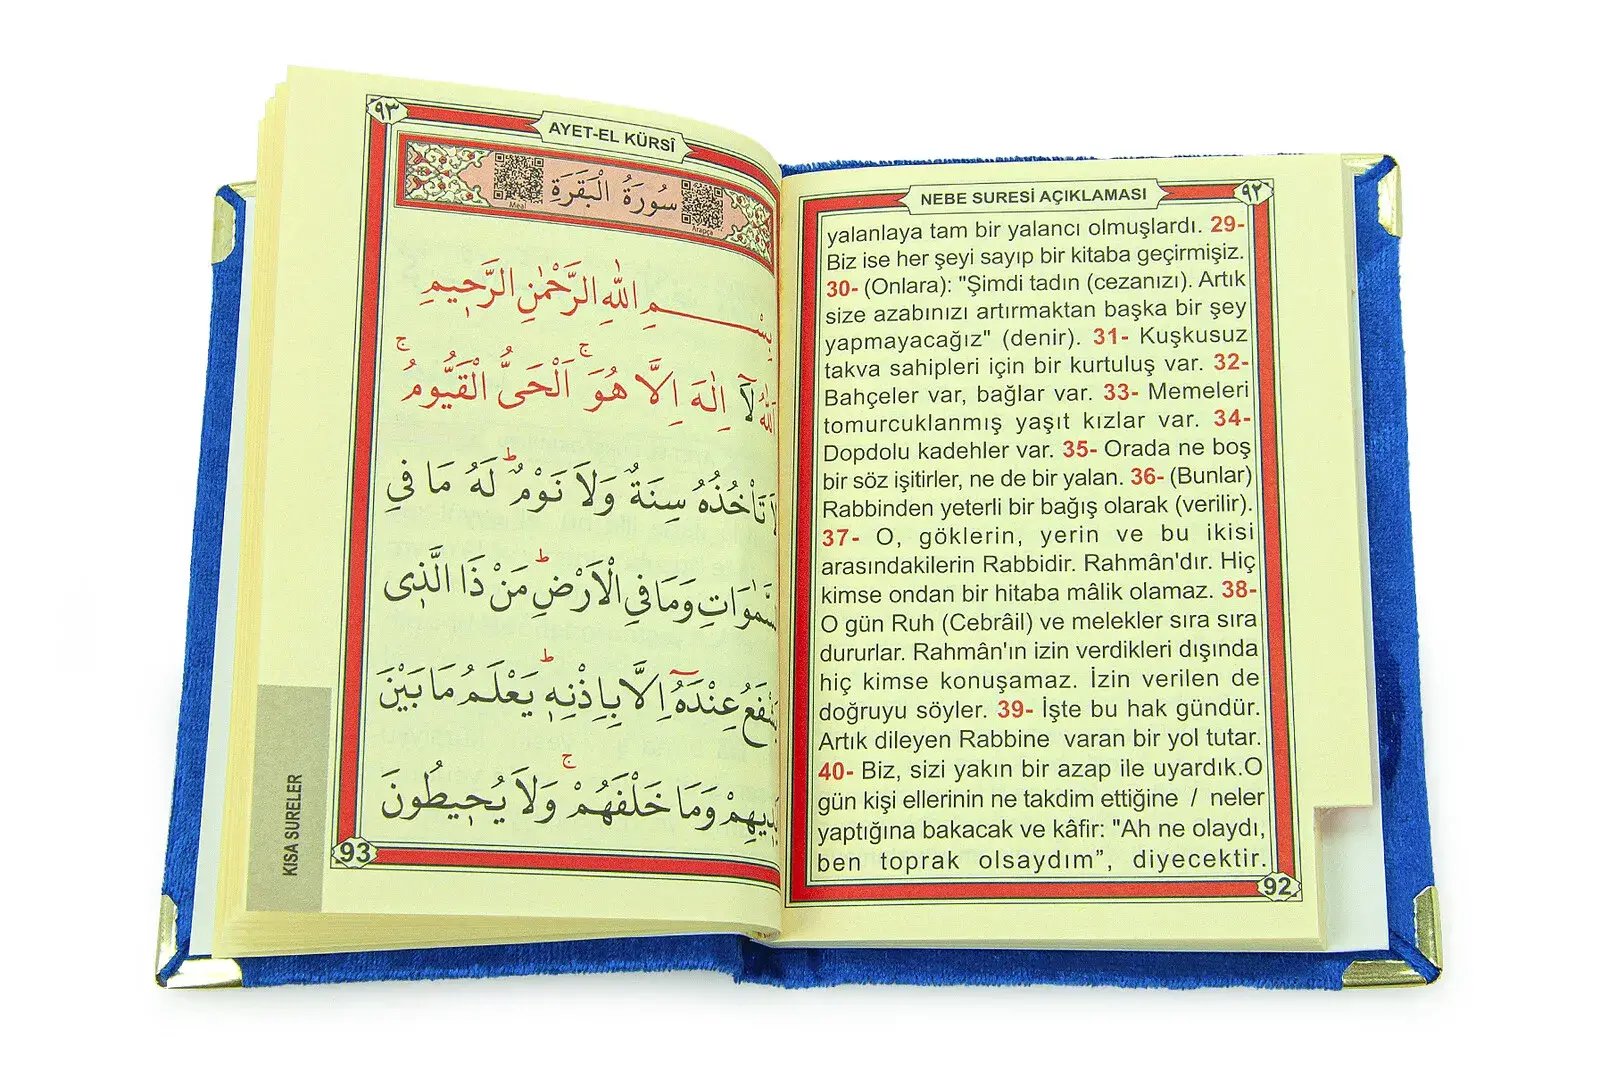 NEBE SURESİ AÇIKLAMASI
٩٢
yalanlaya tam bir yalancı olmuşlardı. 29-
Biz ise her şeyi sayıp bir kitaba geçirmişiz.
30- (Onlara): "Şimdi tadın (cezanızı). Artık
size azabınızı artırmaktan başka bir şey
yapmayacağız" (denir). 31- Kuşkusuz
takva sahipleri için bir kurtuluş var. 32-
Bahçeler var, bağlar var. 33- Memeleri
tomurcuklanmış yaşıt kızlar var. 34-
Dopdolu kadehler var. 35- Orada ne boş
bir söz işitirler, ne de bir yalan. 36- (Bunlar)
Rabbinden yeterli bir bağış olarak (verilir).
37- O, göklerin, yerin ve bu ikisi
arasındakilerin Rabbidir. Rahmân'dır. Hiç
kimse ondan bir hitaba mâlik olamaz. 38-
O gün Ruh (Cebrâil) ve melekler sıra sıra
dururlar. Rahmân'ın izin verdikleri dışında
hiç kimse konuşamaz. İzin verilen de
doğruyu söyler. 39- İşte bu hak gündür.
Artık dileyen Rabbine varan bir yol tutar.
40- Biz, sizi yakın bir azap ile uyardık.O
gün kişi ellerinin ne takdim ettiğine / neler
yaptığına bakacak ve kâfir: "Ah ne olaydı,
ben toprak olsaydım”, diyecektir.
92
٩٣
AYET-EL KÜRSÎ
سُورَةُ الْبَقَرَةِ
Meal
Arapça
بِسْــــمِ اللّٰهِ الرَّحْمٰنِ الرَّح۪يمِ
اَللّٰهُ لَٓا اِلٰهَ اِلَّا هُوَۚ اَلْحَيُّ الْقَيُّومُۚ
تَأْخُذُهُ سِنَةٌ وَلَا نَوْمٌۜ لَهُ مَا فِي
السَّمٰوَاتِ وَمَا فِي الْاَرْضِۜ مَنْ ذَا الَّذ۪ي
يَشْفَعُ عِنْدَهُٓ اِلَّا بِاِذْنِه۪ۜ يَعْلَمُ مَا بَيْنَ
اَيْد۪يهِمْ وَمَا خَلْفَهُمْۚ وَلَا يُح۪يطُونَ
93
KISA SURELER